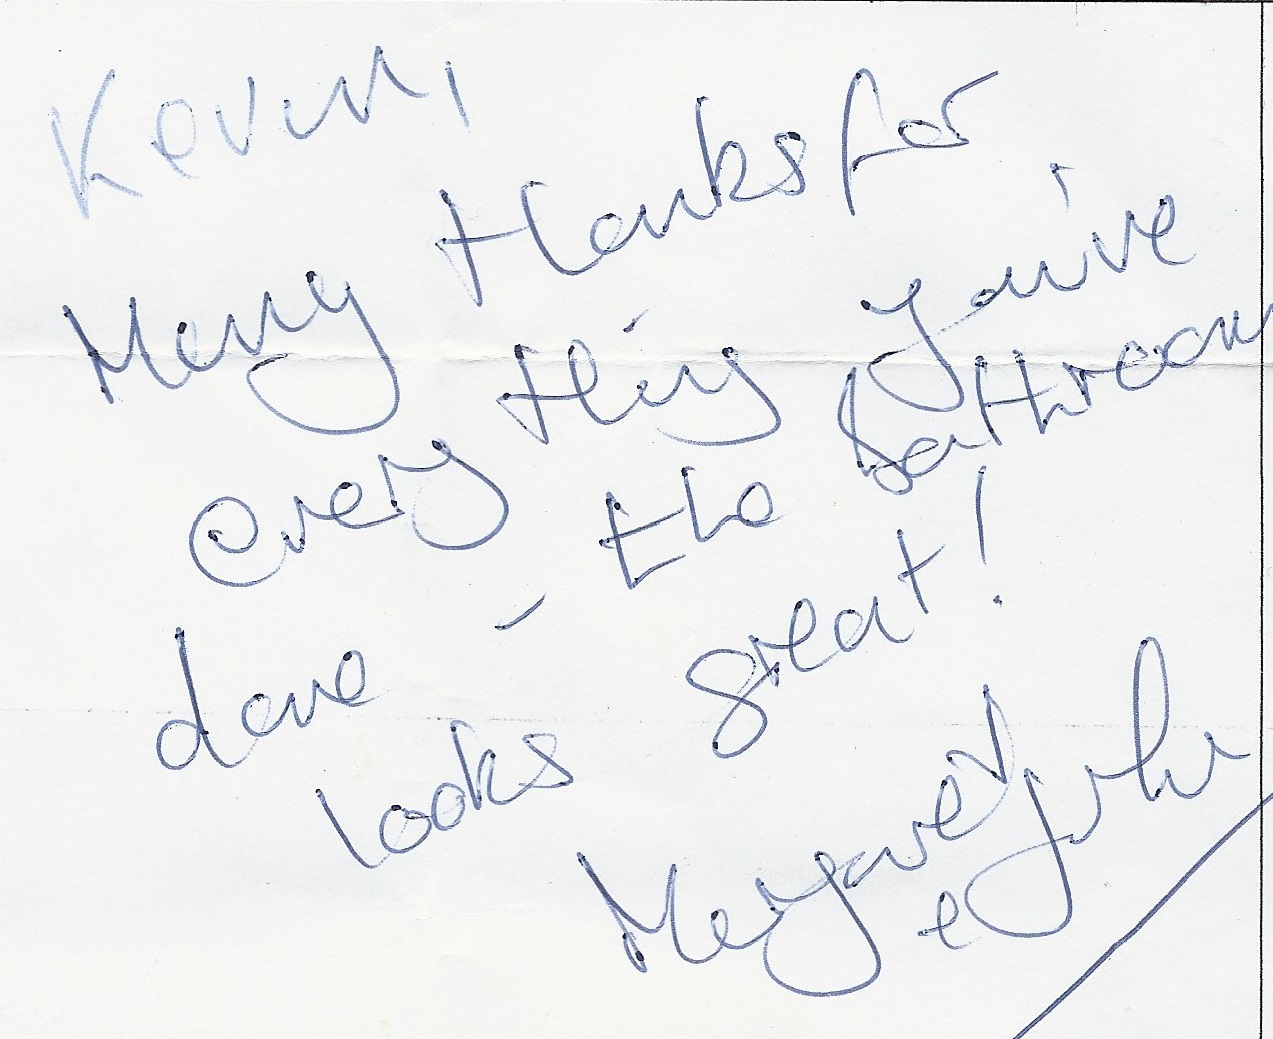 Kevin,
Many thanks for
every thing you've
done - the bathroom
looks great!
Margaret
e John